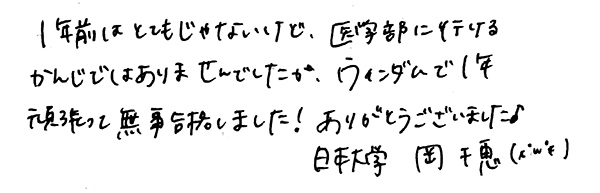 1年前はとてもじゃないけど、医学部に行ける
かんじではありませんでしたが、ウィンダムで1年
頑張って無事合格しました！ありがとうございました♪
日本大学 岡 千恵(*'w'*)